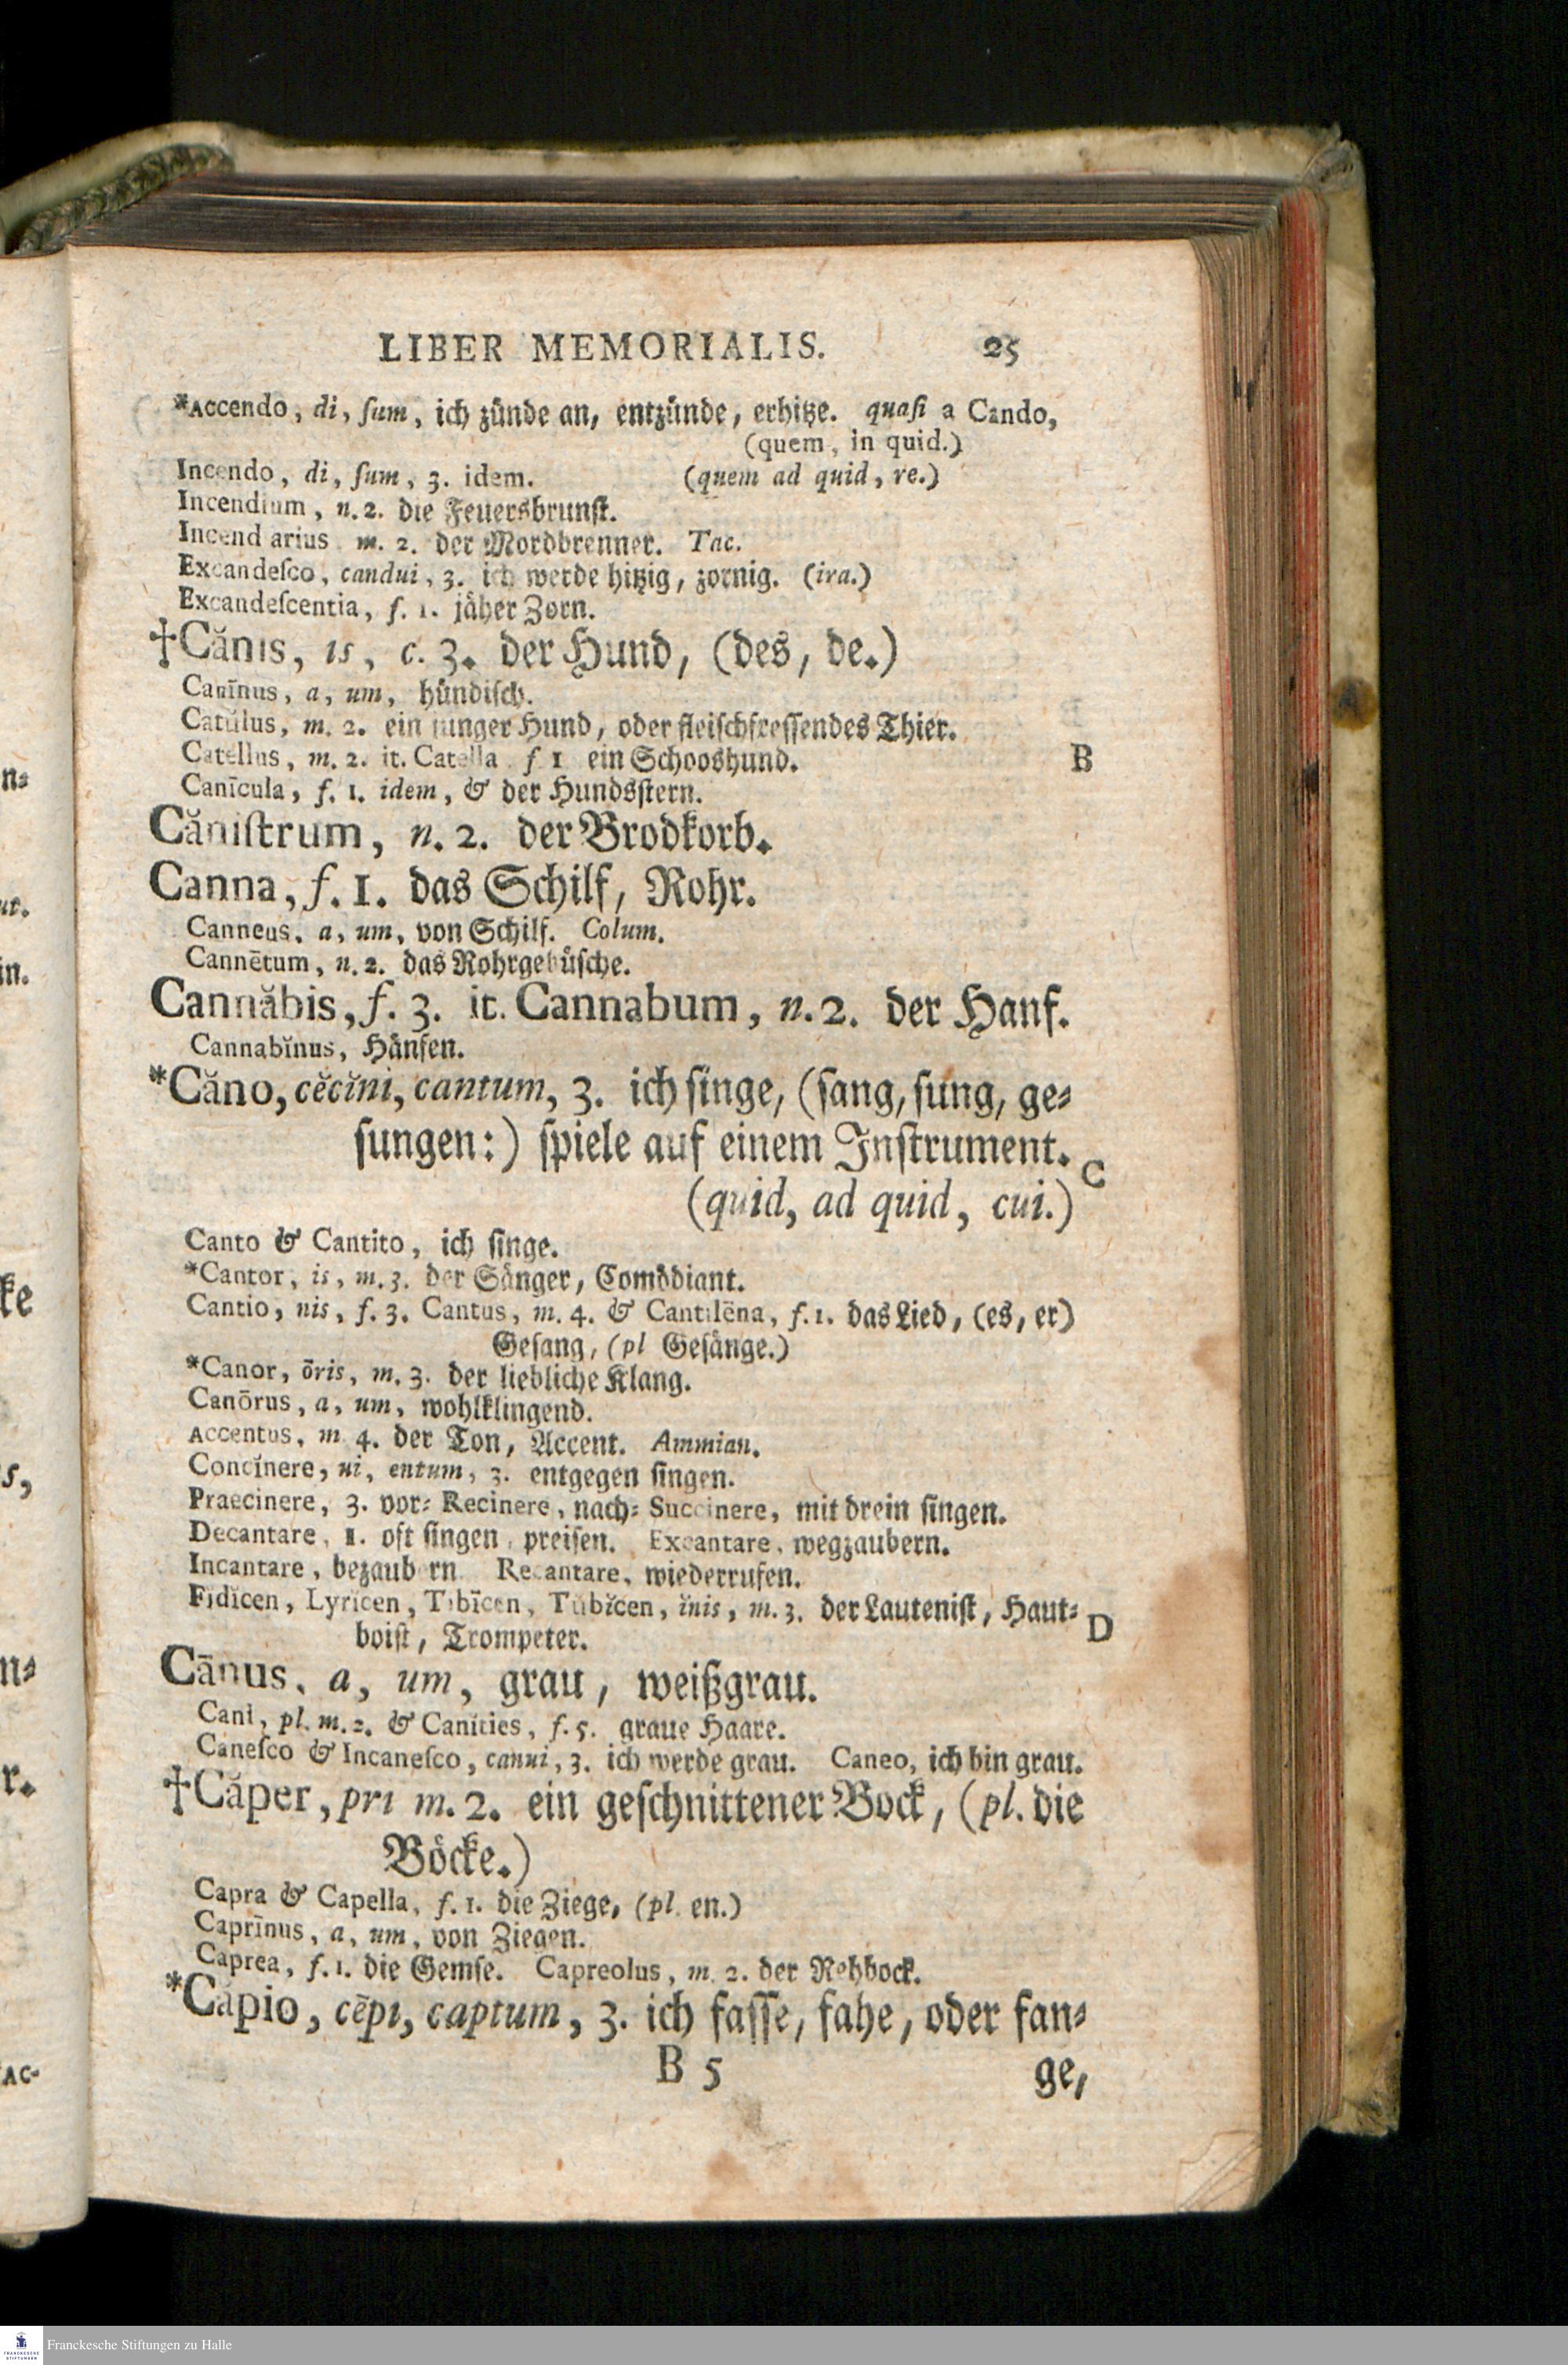 LIBER MEMORIALIS. 25
*Accendo, di, ſum, ich zünde an, entzünde, erhitze. quaſi a Cando,
(quem, in quid.)
Incendo, di, ſum, 3. idem. (quem ad quid, re.)
Incendium, n. 2. die Feuersbrunſt.
Incendiarius m. 2. der Mordbrenner. Tac.
Excandeſco, candui, 3. ich werde hitzig, zornig. (ira.)
Excandeſcentia, f. 1. jäher Zorn.
†Cănis, is, c. 3. der Hund, (des, de.)
Canīnus, a, um, hündiſch.
Catŭlus, m. 2. ein junger Hund, oder fleiſchfreſſendes Thier.
Catellus, m. 2. it. Catella f 1 ein Schooshund. B
Canīcula, f. 1. idem, & der Hundsſtern.
Căniſtrum, n. 2. der Brodkorb.
Canna, f. 1. das Schilf, Rohr.
Canneus, a, um, von Schilf. Colum.
Cannētum, n. 2. das Rohrgebüſche.
Cannăbis, f. 3. it. Cannabum, n. 2. der Hanf.
Cannabĭnus, Hänfen.
*Căno, cĕcĭni, cantum, 3. ich ſinge, (ſang, ſung, ge⸗
ſungen:) ſpiele auf einem Inſtrument. C
(quid, ad quid, cui.)
Canto & Cantito, ich ſinge.
*Cantor, is, m. 3. der Sänger, Comödiant.
Cantio, nis, f. 3. Cantus, m. 4. & Cantilēna, f. 1. das Lied, (es, er)
Geſang, (pl Geſänge.)
*Canor, ōris, m. 3. der liebliche Klang.
Canōrus, a, um, wohlklingend.
Accentus, m 4. der Ton, Accent. Ammian.
Concĭnere, ui, entum, 3. entgegen ſingen.
Praecinere, 3. vor⸗ Recinere, nach⸗ Succinere, mit drein ſingen.
Decantare, 1. oft ſingen, preiſen. Excantare, wegzaubern.
Incantare, bezaubern Recantare, wiederrufen.
Fĭdĭcen, Lyricen, Tibīcen, Tubĭcen, ĭnis, m. 3. der Lautenist, Haut⸗ D
boiſt, Trompeter.
Cānus, a, um, grau, weißgrau.
Cani, pl. m. 2. & Canities, f. 5. graue Haare.
Caneſco & Incaneſco, canui, 3. ich werde grau. Caneo, ich bin grau.
†Căper, pri m. 2. ein geſchnittener Bock, (pl. die
Böcke.)
Capra & Capella, f. 1. die Ziege, (pl. en.)
Caprīnus, a, um, von Ziegen.
Caprea, f. 1. die Gemſe. Capreolus, m. 2. der Rehbock.
*Căpio, cēpi, captum, 3. ich faſſe, fahe, oder fan⸗
B 5 ge,
n⸗
ut.
in.
ke
s,
n⸗
r.
AC-
Franckesche Stiftungen zu Halle
FRANCKESCHE
STIFTUNGEN